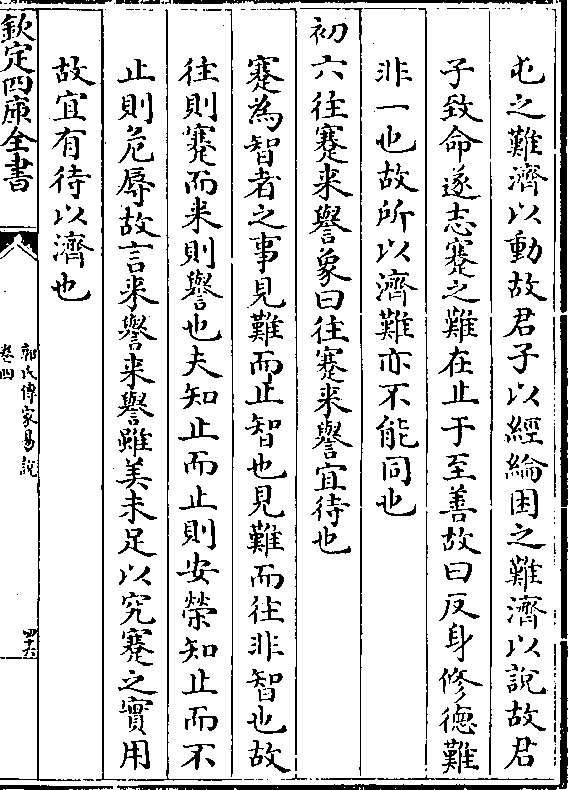 屯之難濟以動故君子以經綸困之難濟以說故君
子致命遂志蹇之難在止于至善故曰反身修徳難
非一也故所以濟難亦不能同也
初六往蹇来譽象曰往蹇来譽宜待也
蹇為智者之事見難而止智也見難而往非智也故
往則蹇而来則譽也夫知止而止則安榮知止而不
止則危辱故言来譽来譽雖美未足以究蹇之實用
故宜有待以濟也
欽定四庫全書
郭氏傳家易說
卷四
四六